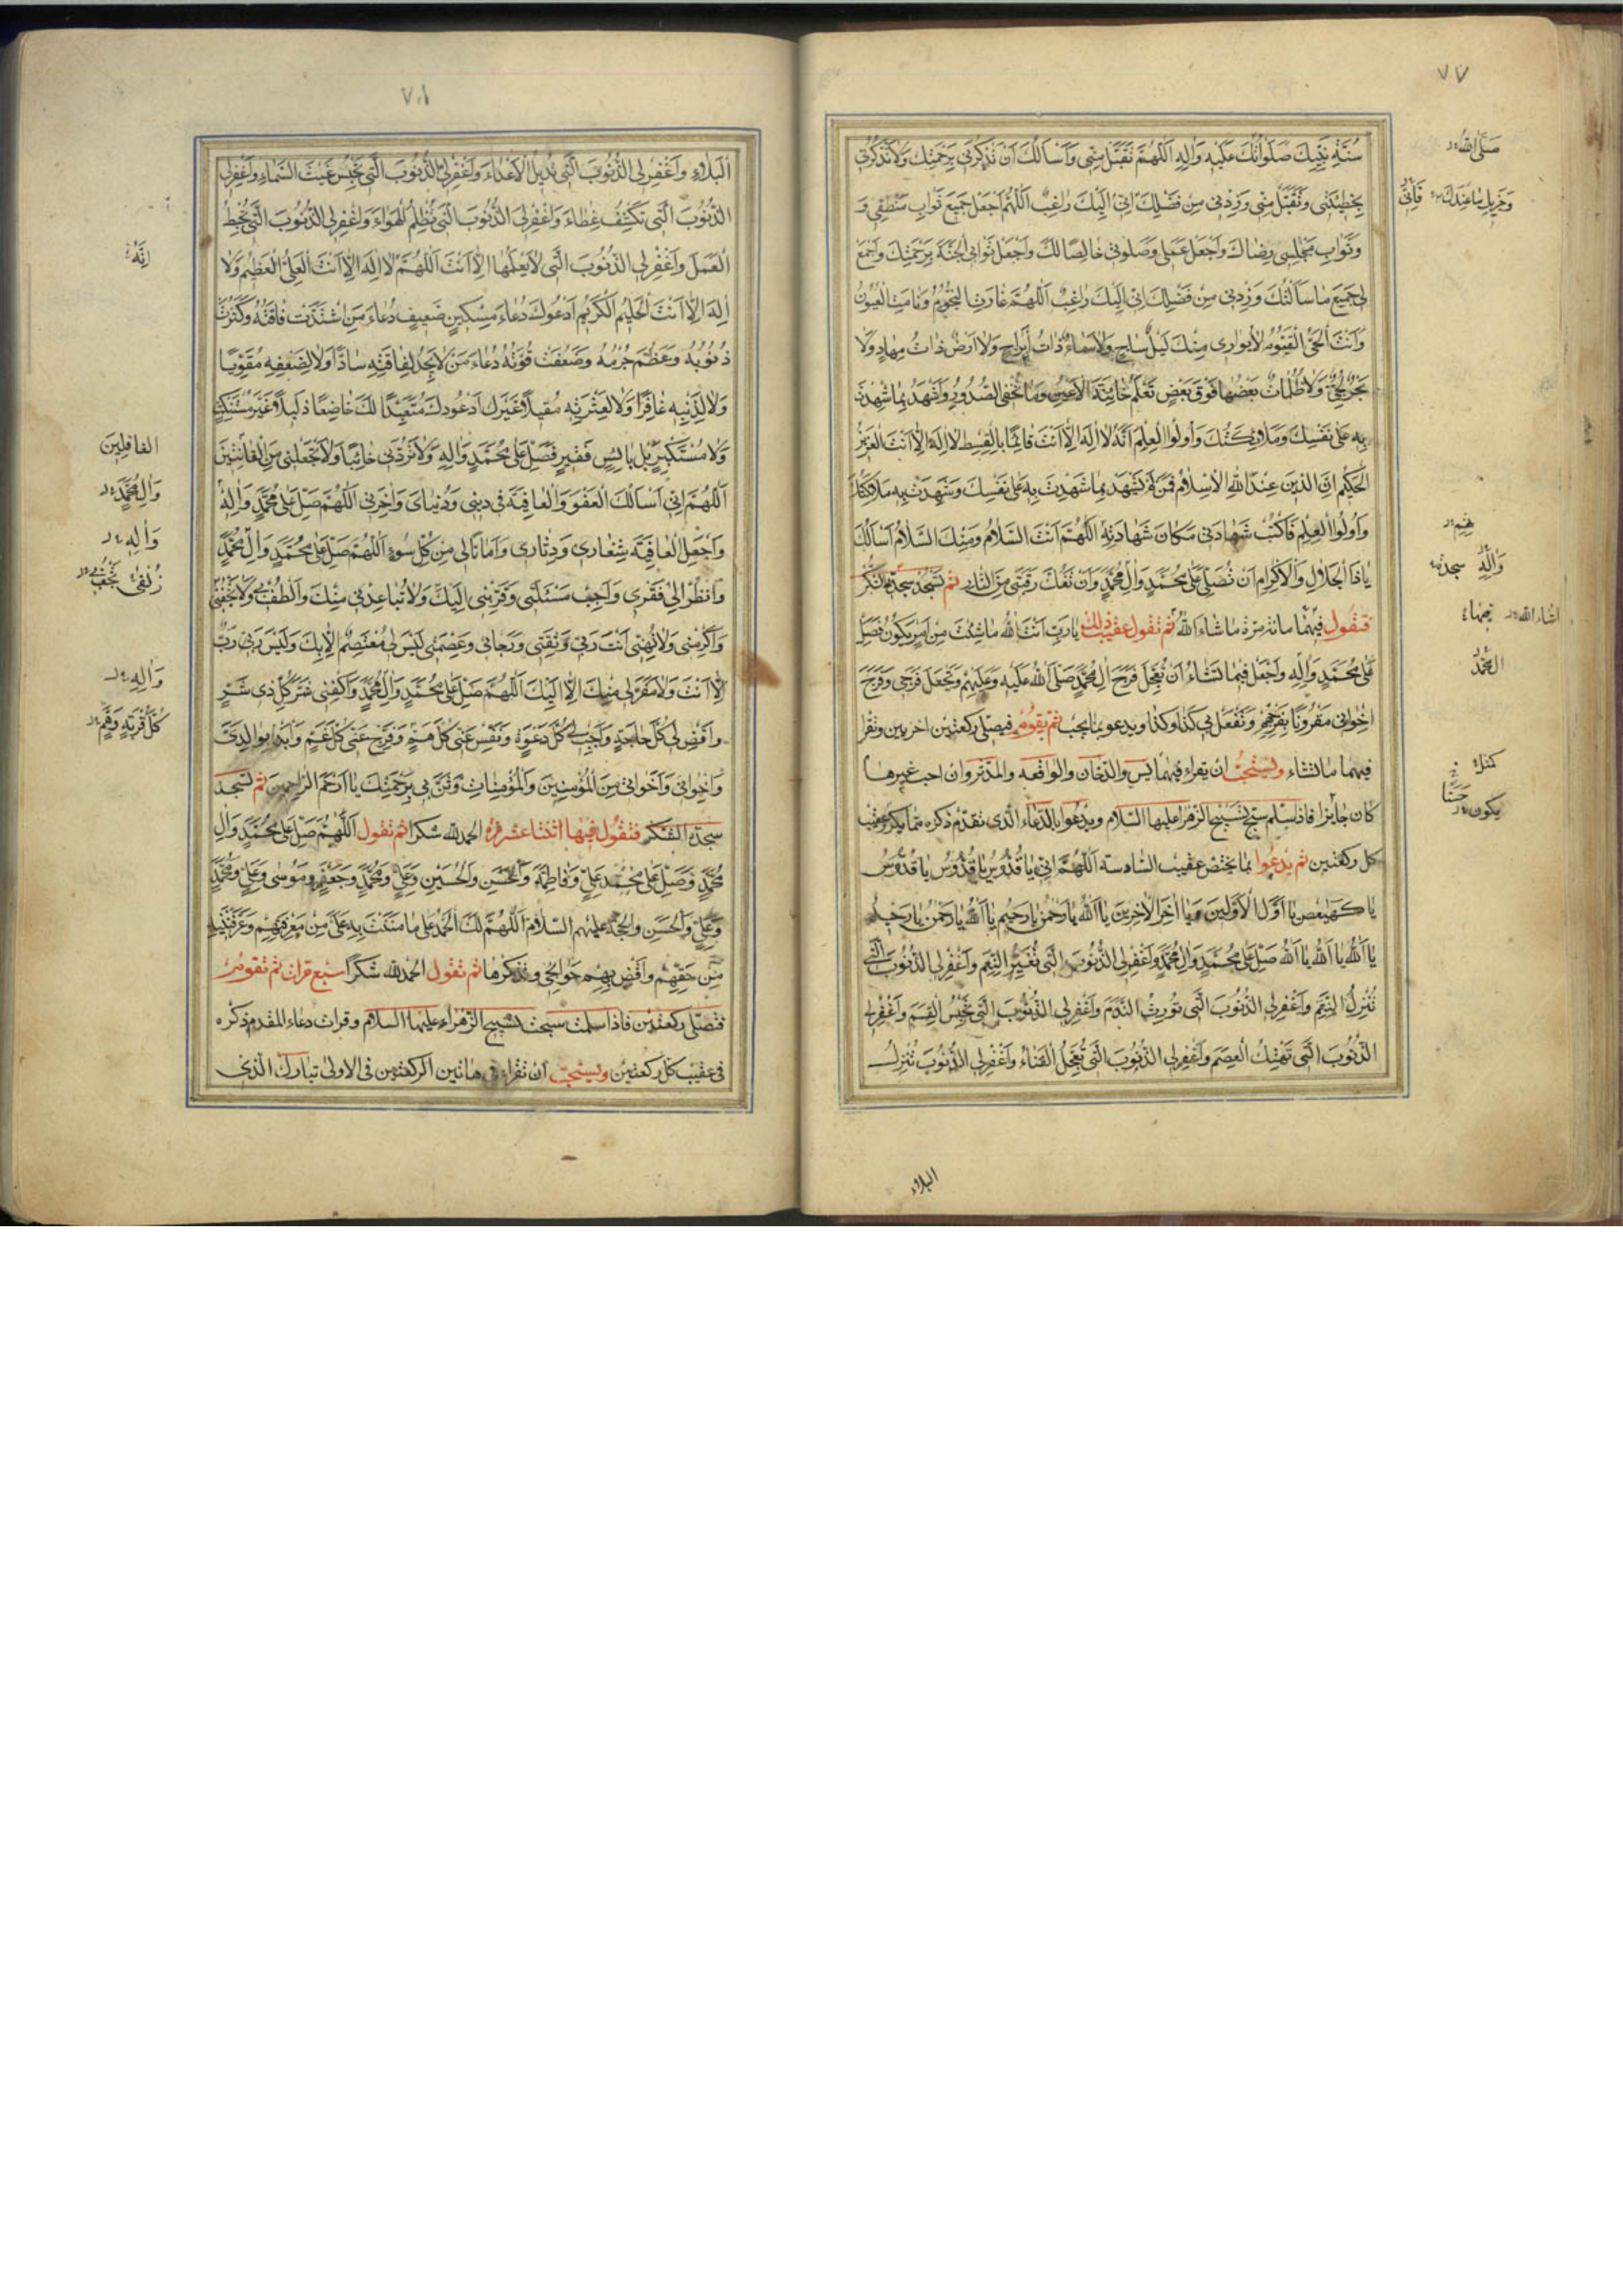 ٧٧
سُنَّةِ نَبِيِّكَ صَلَوَاتُكَ عَلَيْهِ وَالِهِ اَللّهُمَّ تَقَبَّلْ مِنّي وَاَسْاَلُكَ اَنْ تَذْكُرَني بِرَحْمَتِكَ وَلاتَذْكُرْني
بِخَطيئَتي وَتَقَبَّلْ مِنّي وَزِدْني مِنْ فَضْلِكَ اِنّي اِلَيْكَ راغِبٌ اَللّهُمَّ اجْعَلْ جَميعَ ثَوابِ مَنْطِقي وَ
وَثَوابِ مَجْلِسي رِضاكَ وَاجْعَلْ عَمَلي وَصَلوتي خالِصًا لَكَ وَاجْعَلْ ثَوابي الْجَنَّةَ بِرَحْمَتِكَ وَاجْمَعْ
لي جَميعَ ما سَاَلْتُكَ وَزِدْني مِنْ فَضْلِكَ اِنّي اِلَيْكَ راغِبٌ اَللّهُمَّ غارَتِ النُّجُومُ وَنامَتِ الْعُيُونُ
وَاَنْتَ الْحَيُّ الْقَيُّومُ لايُواري مِنْكَ لَيْلٌ ساجٍ وَلاسَماءٌ ذاتُ اَبْراجٍ وَلااَرْضٌ ذاتُ مِهادٍ وَلا
بَحْرٌ لُجِّيٌّ وَلاظُلُماتٌ بَعْضُها فَوْقَ بَعْضٍ تَعْلَمُ خائِنَةَ الْاَعْيُنِ وَما تُخْفِي الصُّدُورُ وَاَشْهَدُ بِما شَهِدْتَ
بِهِ عَلى نَفْسِكَ وَمَلائِكَتُكَ وَاُولُوا الْعِلْمِ اَنَّهُ لااِلهَ اِلّا اَنْتَ قائِمًا بِالْقِسْطِ لااِلهَ اِلّا اَنْتَ الْعَزيزُ
الْحَكيمُ اِنَّ الدّينَ عِنْدَ اللهِ الْاِسْلامُ فَمَنْ لَمْ يَشْهَدْ بِما شَهِدْتَ بِهِ عَلى نَفْسِكَ وَشَهِدَتْ بِهِ مَلائِكَتُكَ
وَاُولُوا الْعِلْمِ فَاكْتُبْ شَهادَتي مَكانَ شَهادَتِهِ اَللّهُمَّ اَنْتَ السَّلامُ وَمِنْكَ السَّلامُ اَسْاَلُكَ
ياذَا الْجَلالِ وَالْاِكْرامِ اَنْ تُصَلِّيَ عَلى مُحَمَّدٍ وَالِ مُحَمَّدٍ وَاَنْ تَفُكَّ رَقَبَتي مِنَ النّارِ ثم تسجد سجدة الشكر
فتقول فيهما مائة مرّة ماشاء الله ثم تقول عقيب ذلك يارَبِّ اَنْتَ اللهُ ماشِئْتَ مِنْ اَمْرٍ يَكُونُ فَصَلِّ
عَلى مُحَمَّدٍ وَالِهِ وَاجْعَلْ فيما تَشاءُ اَنْ تُعَجِّلَ فَرَجَ الِ مُحَمَّدٍ صَلَّى اللهُ عَلَيْهِ وَعَلَيْهِمْ وَتَجْعَلَ فَرَجي وَفَرَجَ
اِخْواني مَقْرُونًا بِفَرَجِهِمْ وَتَفْعَلَ بي كَذا وكذا ويدعو بما يحب ثم يقوم فيصلّي ركعتين اخريين وتقرا
فيهما ماتشاء ويستحبّ ان يقراء فيهما يس والدّخان والواقعه والمدّثر وان احب غيرها
كان جايزا فاذا سلم سبّح تسبيح الزهرا عليها السّلام ويدعوا بالدّعاء الّذي تقدّم ذكره ممّا يكرّر عقيب
كل ركعتين ثم يدعوا بما يختص عقيب السّادسة اَللّهُمَّ اِنّي ياقُدُّوسُ ياقُدُّوسُ ياقُدُّوسُ
ياكهيعص يااَوَّلَ الْاَوَّلينَ وَيااخِرَ الْاخِرينَ يااَللهُ يارَحْمنُ يارَحيمُ يااَللهُ يارَحْمنُ يارَحيمُ
يااَللهُ يااَللهُ يااَللهُ صَلِّ عَلى مُحَمَّدٍ وَالِ مُحَمَّدٍ وَاغْفِرْ لِي الذُّنُوبَ الَّتي تُغَيِّرُ النِّعَمَ وَاغْفِرْ لِي الذُّنُوبَ الَّتي
تُنْزِلُ النِّقَمَ وَاغْفِرْ لِي الذُّنُوبَ الَّتي تُورِثُ النَّدَمَ وَاغْفِرْ لِي الذُّنُوبَ الَّتي تَحْبِسُ الْقِسَمَ وَاغْفِرْ لِي
الذُّنُوبَ الَّتي تَهْتِكُ الْعِصَمَ وَاغْفِرْ لِي الذُّنُوبَ الَّتي تُعَجِّلُ الْفَناءَ وَاغْفِرْ لِي الذُّنُوبَ تُنْزِلُ
البلاء
صَلَّى اللهُ
وَجَزيلِ ماعِنْدَكَ فَاِنّي
وَالِهِ سجدة
انشاء الله
يكون
حَسَنًا
٧٨
الْبَلاءَ وَاغْفِرْ لِي الذُّنُوبَ الَّتي تُديلُ الْاَعْداءَ وَاغْفِرْ لِي الذُّنُوبَ الَّتي تَحْبِسُ غَيْثَ السَّماءِ وَاغْفِرْ لِي
الذُّنُوبَ الَّتي تَكْشِفُ غِطاءَ وَاغْفِرْ لِيَ الذُّنُوبَ الَّتي تُظْلِمُ الْهَواءَ وَاغْفِرْ لِي الذُّنُوبَ الَّتي تُحْبِطُ
الْعَمَلَ وَاغْفِرْ لِي الذُّنُوبَ الَّتي لايَعْلَمُها اِلّا اَنْتَ اَللّهُمَّ لااِلهَ اِلّا اَنْتَ الْعَلِيُّ الْعَظيمُ وَلا
اِلهَ اِلّا اَنْتَ الْحَليمُ الْكَريمُ اَدْعُوكَ دُعاءَ مِسْكينٍ ضَعيفٍ دُعاءَ مَنِ اشْتَدَّتْ فاقَتُهُ وَكَثُرَتْ
ذُنُوبُهُ وَعَظُمَ جُرْمُهُ وَضَعُفَتْ قُوَّتُهُ دُعاءَ مَنْ لايَجِدُ لِفاقَتِهِ سادًّا وَلالِضَعْفِهِ مُقَوِّيًا
وَلالِذَنْبِهِ غافِرًا وَلالِعَثْرَتِهِ مُقيلًا غَيْرَكَ اَدْعُوكَ مُتَعَبِّدًا لَكَ خاضِعًا ذَليلًا غَيْرَ مُسْتَنْكِفٍ
وَلامُسْتَكْبِرٍ بَلْ بائِسٍ فَقيرٍ فَصَلِّ عَلى مُحَمَّدٍ وَالِهِ وَلاتَرُدَّني خائِبًا وَلاتَجْعَلْني مِنَ الْقانِتينَ
اَللّهُمَّ اِنّي اَسْاَلُكَ الْعَفْوَ وَالْعافِيَةَ في ديني وَدُنْيايَ وَاخِرَتي اَللّهُمَّ صَلِّ عَلى مُحَمَّدٍ وَالِهِ
وَاجْعَلِ الْعافِيَةَ شِعاري وَدِثاري وَاَمانًا لي مِنْ كُلِّ سُوءٍ اَللّهُمَّ صَلِّ عَلى مُحَمَّدٍ وَالِ مُحَمَّدٍ
وَانْظُرْ اِلى فَقْري وَاَجِبْ مَسْئَلَتي وَقَرِّبْني اِلَيْكَ وَلاتُباعِدْني مِنْكَ وَالْطُفْ بي وَلاتَجْفُني
وَاَكْرِمْني وَلاتُهِنّي اَنْتَ رَبّي وَثِقَتي وَرَجائي وَعِصْمَتي لَيْسَ لي مُعْتَصَمٌ اِلّا بِكَ وَلَيْسَ لي رَبٌّ
اِلّا اَنْتَ وَلامَفَرَّ لي مِنْكَ اِلّا اِلَيْكَ اَللّهُمَّ صَلِّ عَلى مُحَمَّدٍ وَالِ مُحَمَّدٍ وَاكْفِني شَرَّ كُلِّ ذي شَرٍّ
وَاقْضِ لي كُلَّ حاجَةٍ وَاَجِبْ لي كُلَّ دَعْوَةٍ وَنَفِّسْ عَنّي كُلَّ هَمٍّ وَفَرِّجْ عَنّي كُلَّ غَمٍّ وَابْدَاْ بِوالِدَيَّ
وَاِخْواني وَاَخَواتي مِنَ الْمُؤْمِنينَ وَالْمُؤْمِناتِ وَثَنِّ بي بِرَحْمَتِكَ يااَرْحَمَ الرّاحِمينَ ثم تسجد
سجدة الشكر فتقول فيها اثنتا عشر مرّة الحمدلله شكرا ثم تقول اَللّهُمَّ صَلِّ عَلى مُحَمَّدٍ وَالِ
مُحَمَّدٍ وَصَلِّ عَلى مُحَمَّدٍ عَلِيٍّ وَفاطِمَةَ وَالْحَسَنِ وَالْحُسَيْنِ وَعَلِيٍّ وَمُحَمَّدٍ وَجَعْفَرٍ وَمُوسى وَعَلِيٍّ وَمُحَمَّدٍ
وَعَلِيٍّ وَالْحَسَنِ وَالْحُجَّةِ عليهم السّلام اَللّهُمَّ لَكَ الْحَمْدُ عَلى مامَنَنْتَ بِهِ عَلَيَّ مِنْ مَعْرِفَتِهِمْ وَعَرَّفْتَنيهِ
مِنْ حَقِّهِمْ وَاقْضِ بِهِمْ حَوائِجي وتذكرها ثم تقول الحمدلله شكرًا سبع مرّات ثم تقوم
فتصلّي ركعتين فاذا سلمت سبحت تسبيح الزهراء عليها السلام وقرات دعاء المقدم ذكره
في عقيب كل ركعتين ويستحبّ ان تقراء في هاتين الركعتين في الاولى تبارك الذي
اِنَّهُ
الغافِلينَ
وَالِ مُحَمَّدٍ
وَالِهِ
زُلْفى
وَالِهِ